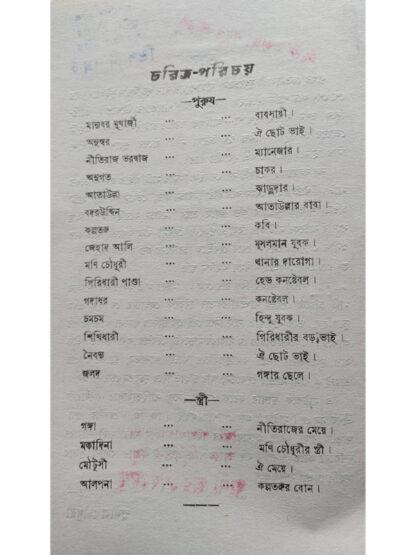 চরিত্র-পরিচয়
—পুরুষ—
মান্যবর মুখার্জী ... ... ব্যবসায়ী।
অন্বয় ... ... ঐ ছোট ভাই।
নীতিরাজ ভরদ্বাজ ... ... ম্যানেজার।
অনুগত ... ... চাকর।
আতাউল্লা ... ... ঝাড়ুদার।
বদরউদ্দিন ... ... আতাউল্লার বাবা।
কল্পতরু ... ... কবি।
জেহাদ আলি ... ... মুসলমান যুবক।
মণি চৌধুরী ... ... থানার দারোগা।
গিরিধারী পাণ্ডা ... ... হেড কনষ্টেবল।
গঙ্গাধর ... ... কনষ্টেবল।
চমচম ... ... হিন্দু যুবক।
শিখিধারী ... ... গিরিধারীর বড় ভাই।
নৈবদ্য ... ... ঐ ছোট ভাই।
জলদ ... ... গঙ্গার ছেলে।
—স্ত্রী—
গঙ্গা ... ... নীতিরাজের মেয়ে।
মন্দাকিনী ... ... মণি চৌধুরীর স্ত্রী।
মৌটুসী ... ... ঐ মেয়ে।
আলপনা ... ... কল্পতরুর বোন।